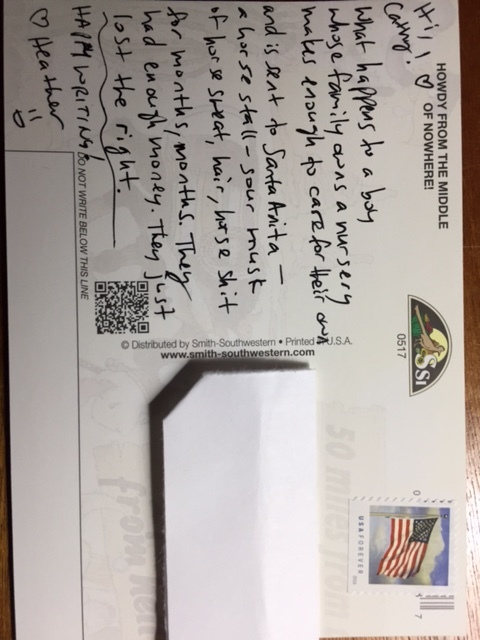 HOWDY FROM THE MIDDLE
OF NOWHERE!
Hi, ♡
Cathy!
What happens to a boy
whose family owns a nursery
makes enough to care for their own
and is sent to Santa Anita —
a horse stall – sour musk
of horse sweat, hair, horse shit
for months, months. They
had enough money. They just
lost the right.
HAPPY WRITING!
♡ Heather
DO NOT WRITE BELOW THIS LINE
© Distributed by Smith-Southwestern • Printed in U.S.A.
www.smith-southwestern.com
SSI
0517
USA FOREVER
50 miles from
from here